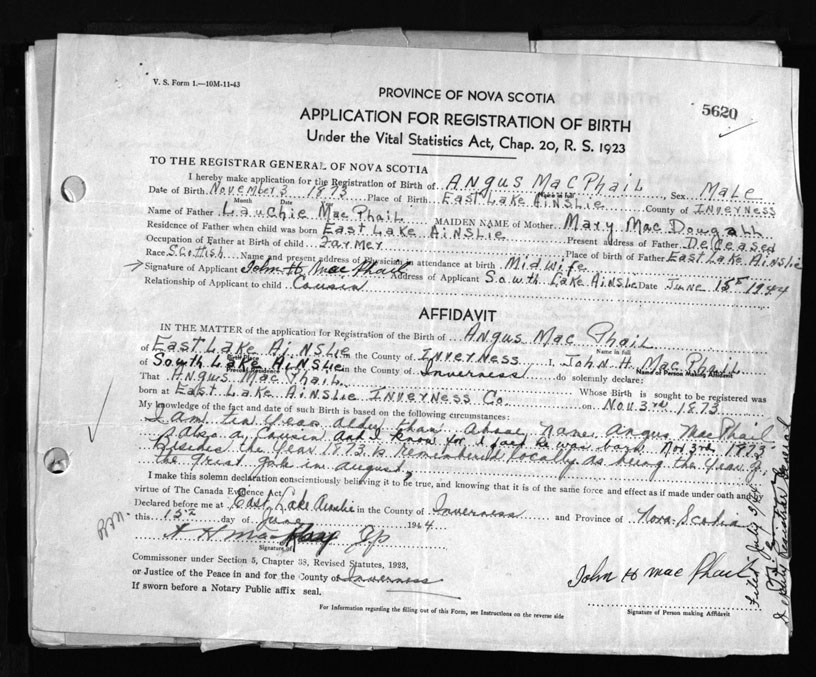 V. S. Form 1.—10M-11-43
PROVINCE OF NOVA SCOTIA
5620
APPLICATION FOR REGISTRATION OF BIRTH
Under the Vital Statistics Act, Chap. 20, R. S. 1923
TO THE REGISTRAR GENERAL OF NOVA SCOTIA
I hereby make application for the Registration of Birth of Angus MacPhail, Sex Male
Date of Birth November 3 1873 Place of Birth East Lake Ainslie County of Inverness
Month Date
Name of Father Lauchie MacPhail MAIDEN NAME of Mother Mary MacDougall
Residence of Father when child was born East Lake Ainslie Present address of Father Deceased
Occupation of Father at Birth of child Farmer Place of birth of Father East Lake Ainslie
Race Scottish Name and present address of Physician in attendance at birth Midwife
Signature of Applicant John H MacPhail Address of Applicant South Lake Ainslie Date June 15 1944
Relationship of Applicant to child Cousin
AFFIDAVIT
IN THE MATTER of the application for Registration of the Birth of Angus MacPhail
Name in full
of East Lake Ainslie in the County of Inverness I, John H. MacPhail
Name of Person Making Affidavit
of South Lake Ainslie in the County of Inverness do solemnly declare:
That Angus MacPhail Whose Birth is sought to be registered was
born at East Lake Ainslie Inverness Co. on Nov 3rd 1873
My knowledge of the fact and date of such Birth is based on the following circumstances:
I am ten years older than above name Angus MacPhail
also a Cousin and I know for he was born Nov 3rd 1873
Besides the year 1873 is remembered locally as being the year of
the great gale in august
I make this solemn declaration conscientiously believing it to be true, and knowing that it is of the same force and effect as if made under oath and by
virtue of The Canada Evidence Act.
Declared before me at East Lake Ainslie in the County of Inverness and Province of Nova Scotia
this 15 day of June 1944
Signature of
Commissioner under Section 5, Chapter 38, Revised Statutes, 1923,
or Justice of the Peace in and for the County of Inverness
If sworn before a Notary Public affix seal.
John H MacPhail
Signature of Person making Affidavit
For Information regarding the filling out of this Form, see Instructions on the reverse side
Filed July
Deputy Registrar General